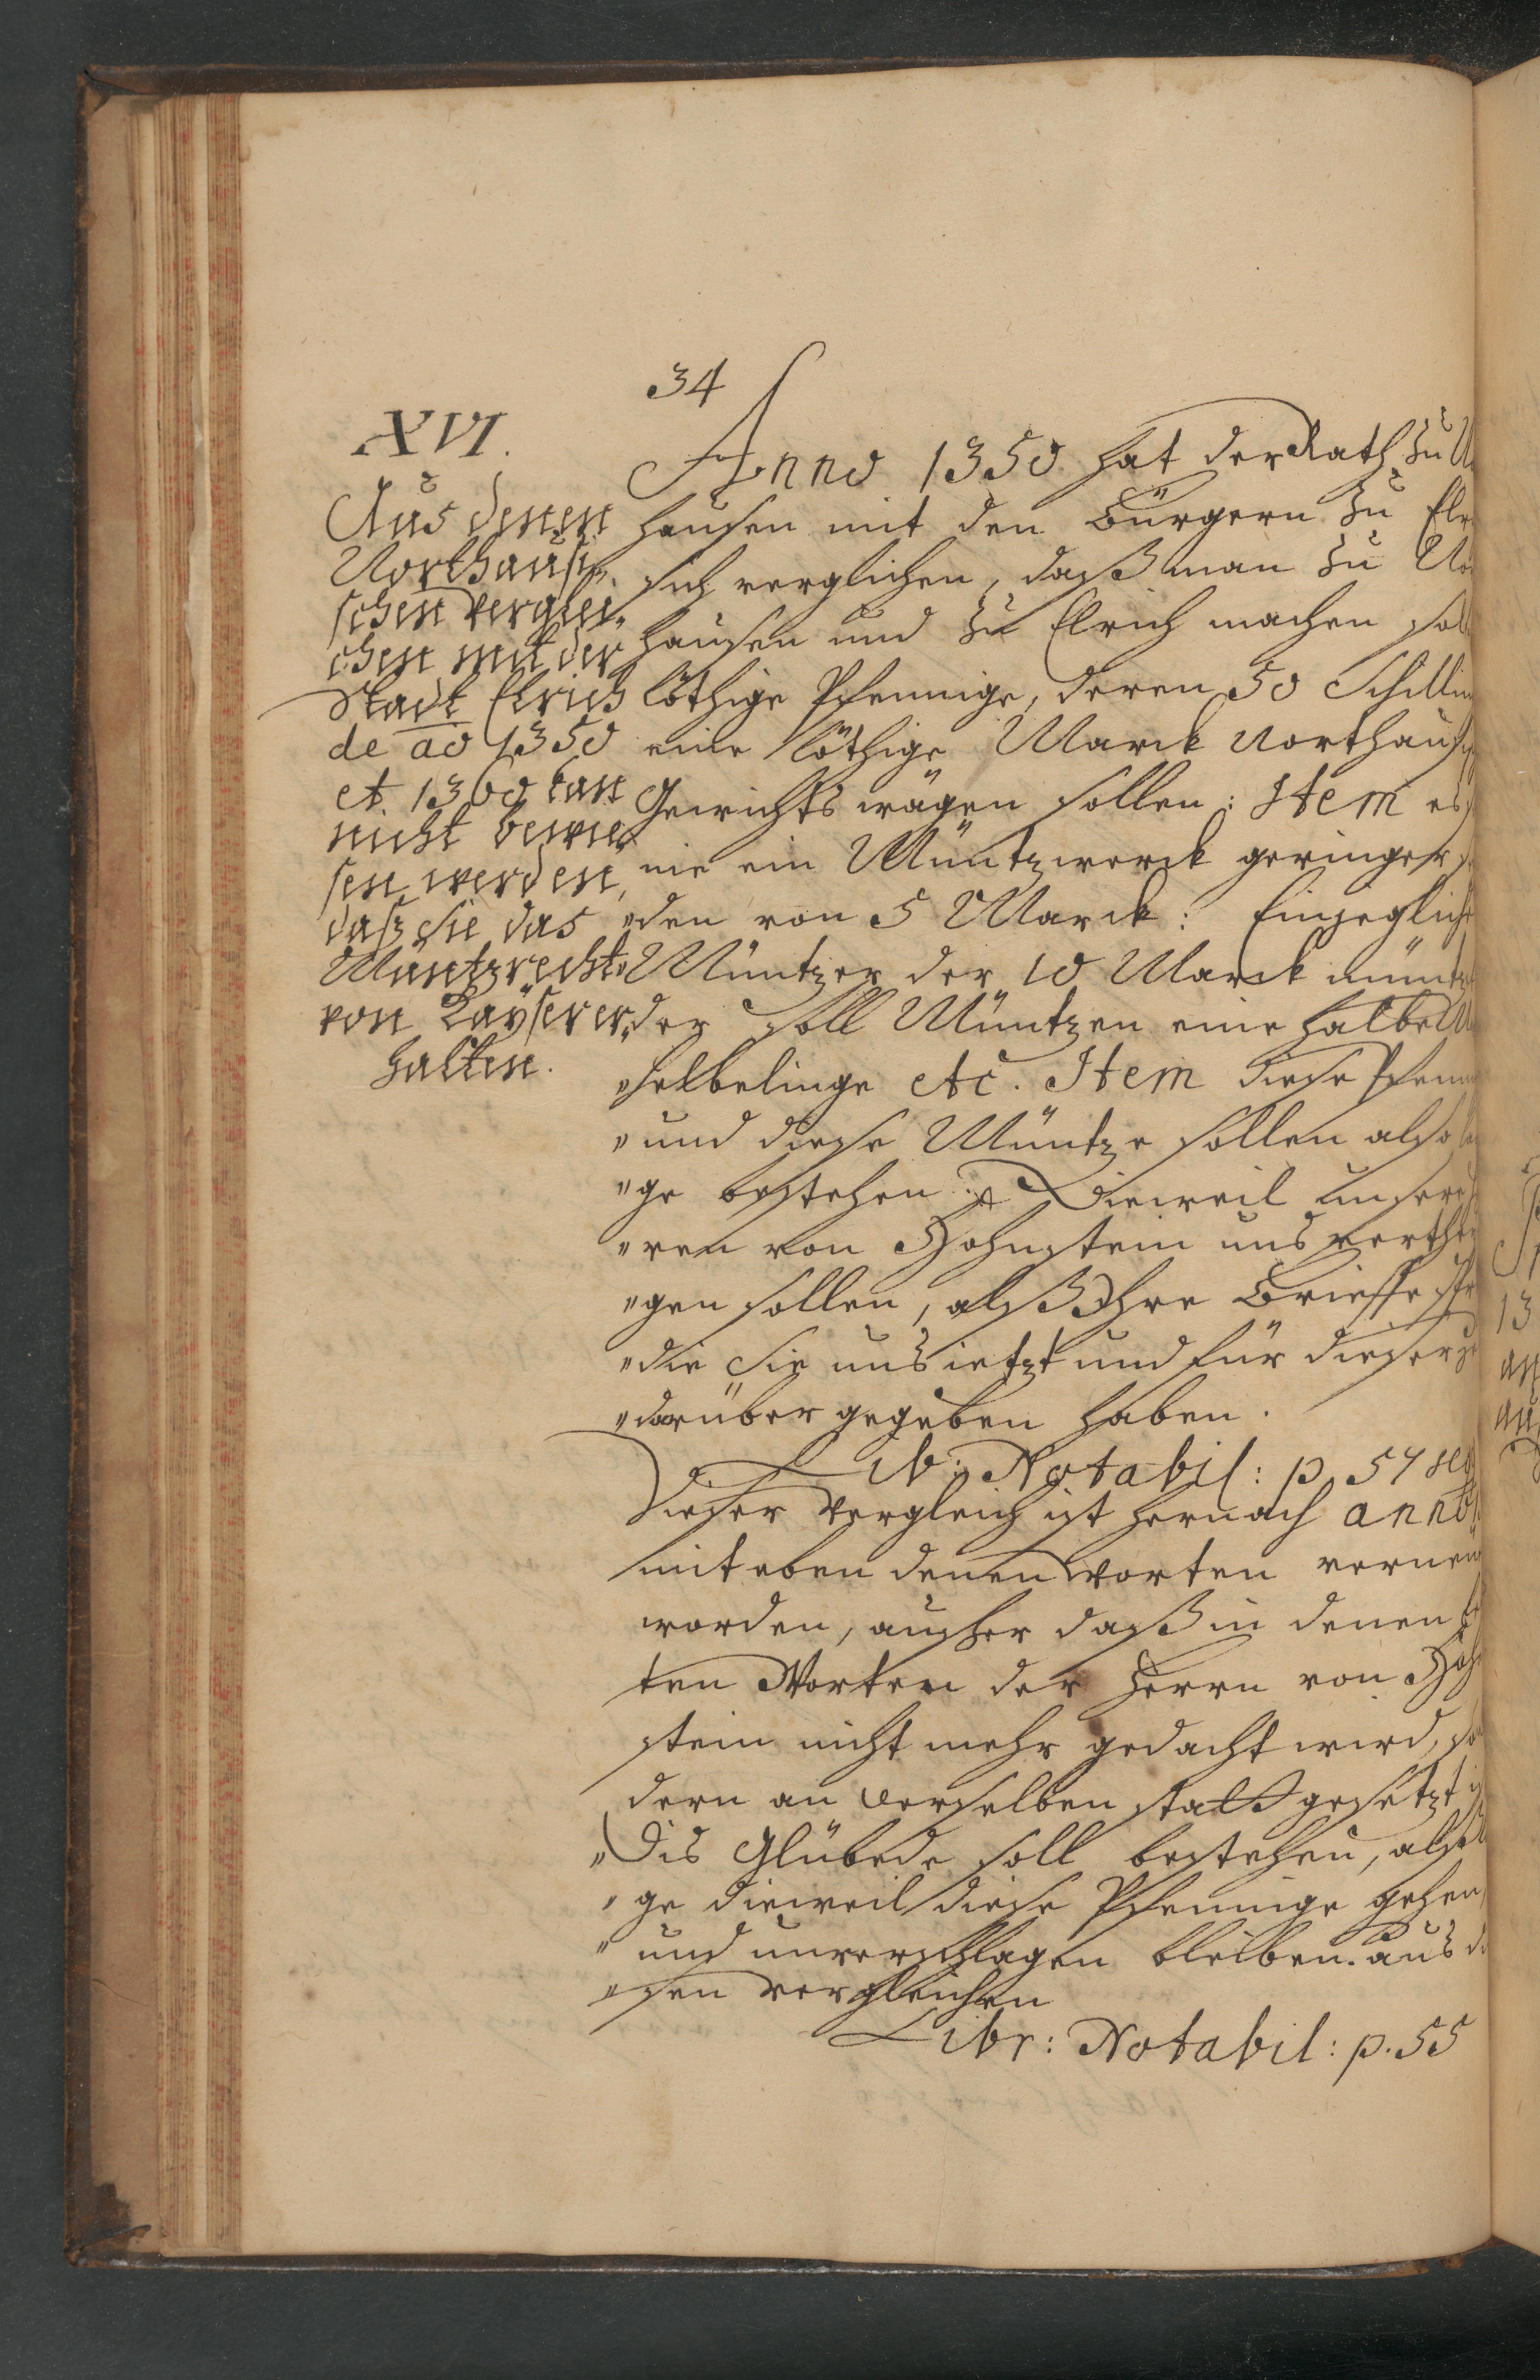 34
XVI.
Aus denen
Northausi„
schen verglei„
chen mit der
Stadt Elrich
de ao 1350
et 1360 kan
nicht bewie„
sen werden,
daß sie das
Müntzrecht
von Kayser er„
halten.
Anno 1350 hat der Rath zu N
hausen mit den Bürgern zu Elr
sich verglichen, daß man zu No
hausen und zu Elrich machen sol
löthige Pfennige, deren 50 Schillin
eine löthige Marck Northaus
Gewichts wägen sollen: Item es
nie ein Müntzwerck geringer
„den von 5 Marck: Einjeglich
„Müntzer der 10 Marck müntz
„der soll Müntzen eine halbe M
„helbelinge etc. Item diese Pfenni
„und diese Müntze sollen also
„ge bestehen Dieweil unsere
„ren von Hohnstein uns verthe
„gen sollen, alß Ihre Brieffe
„die Sie uns ietzt und für dieser
„darüber gegeben haben.
Lib: Notabil: p. 54 seq
Dieser Vergleich ist hernach anno
mit eben denen Worten verneu
worden, ausser daß in denen
ten Worten der Herrn von Hoh
stein nicht mehr gedacht wird, so
dern an derselben statt gesetzt
„Dis Glübede soll bestehen, alß
„ge dieweil diese Pfennige gehen
„und unverschlagen bleiben. aus d
„sen vergleichen
Libr: Notabil: p. 55